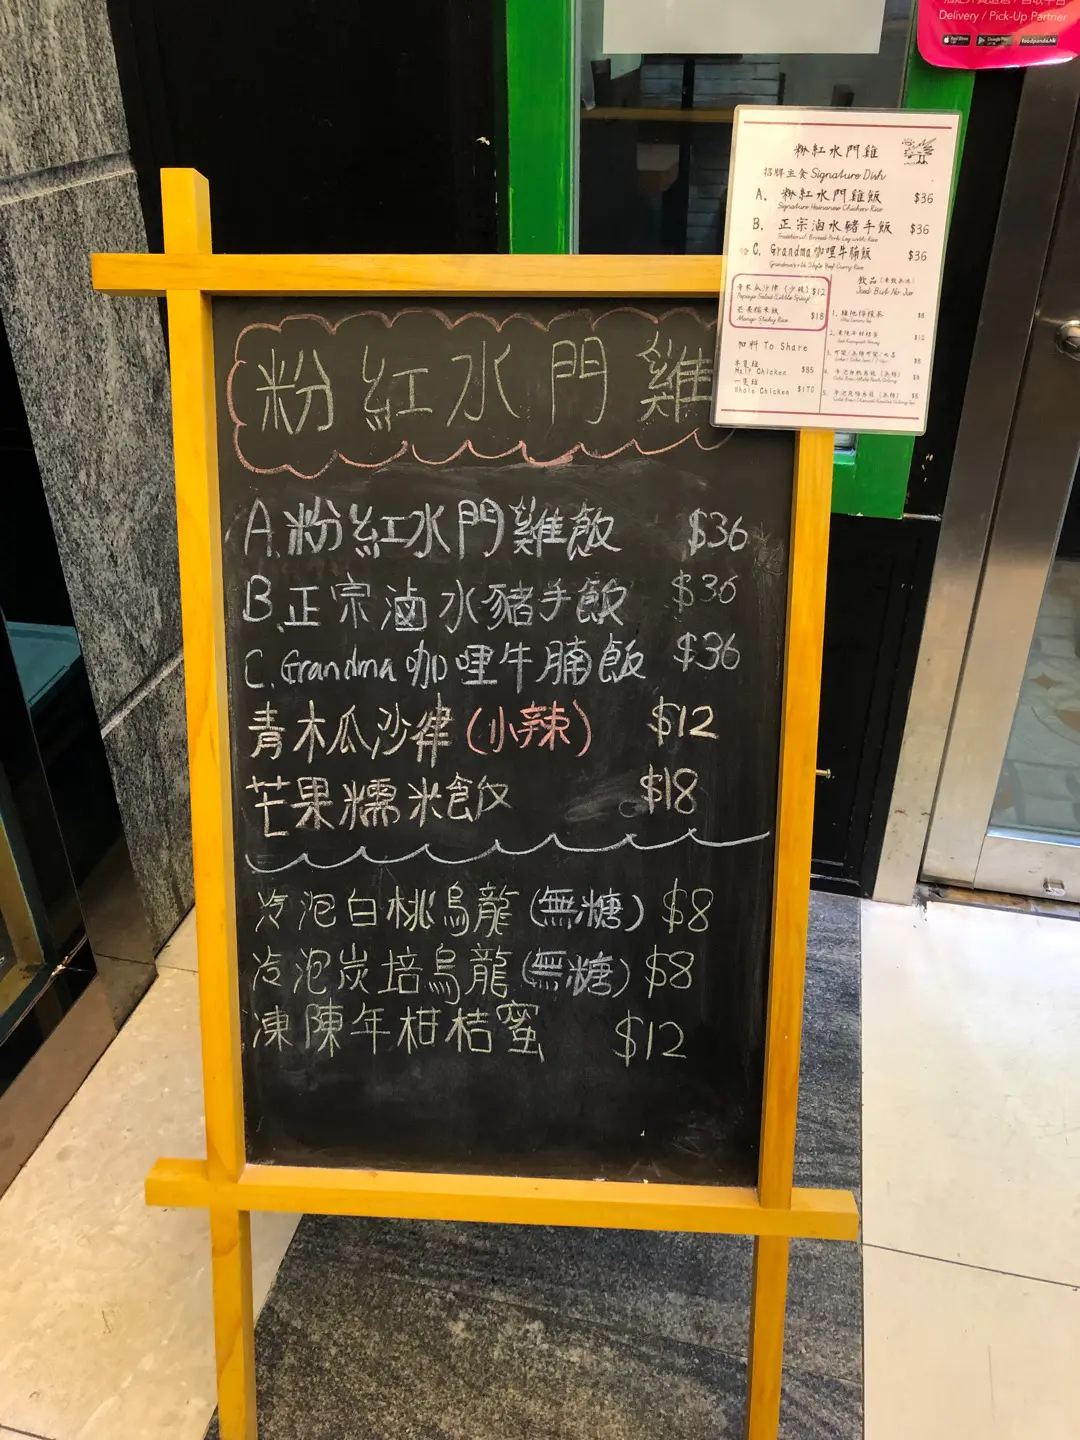 Delivery / Pick-Up Partner
粉紅水門雞
招牌主食 Signature Dish
A. 粉紅水門雞飯 $36
Signature Hainanese Chicken Rice
B. 正宗滷水豬手飯 $36
Traditional Braised Pork Leg with Rice
C. Grandma咖喱牛腩飯 $36
青木瓜沙律 (少辣) $12
Papaya Salad (Little Spicy)
芒果糯米飯 $18
Mango Sticky Rice
加料 To Share
半隻雞
Half Chicken $85
一隻雞
Whole Chicken $170
飲品
Just But No Jar
粉紅水門雞
A.粉紅水門雞飯 $36
B.正宗滷水豬手飯 $36
C.Grandma咖哩牛腩飯 $36
青木瓜沙律(小辣) $12
芒果糯米飯 $18
冷泡白桃烏龍(無糖) $8
冷泡炭培烏龍(無糖) $8
凍陳年柑桔蜜 $12